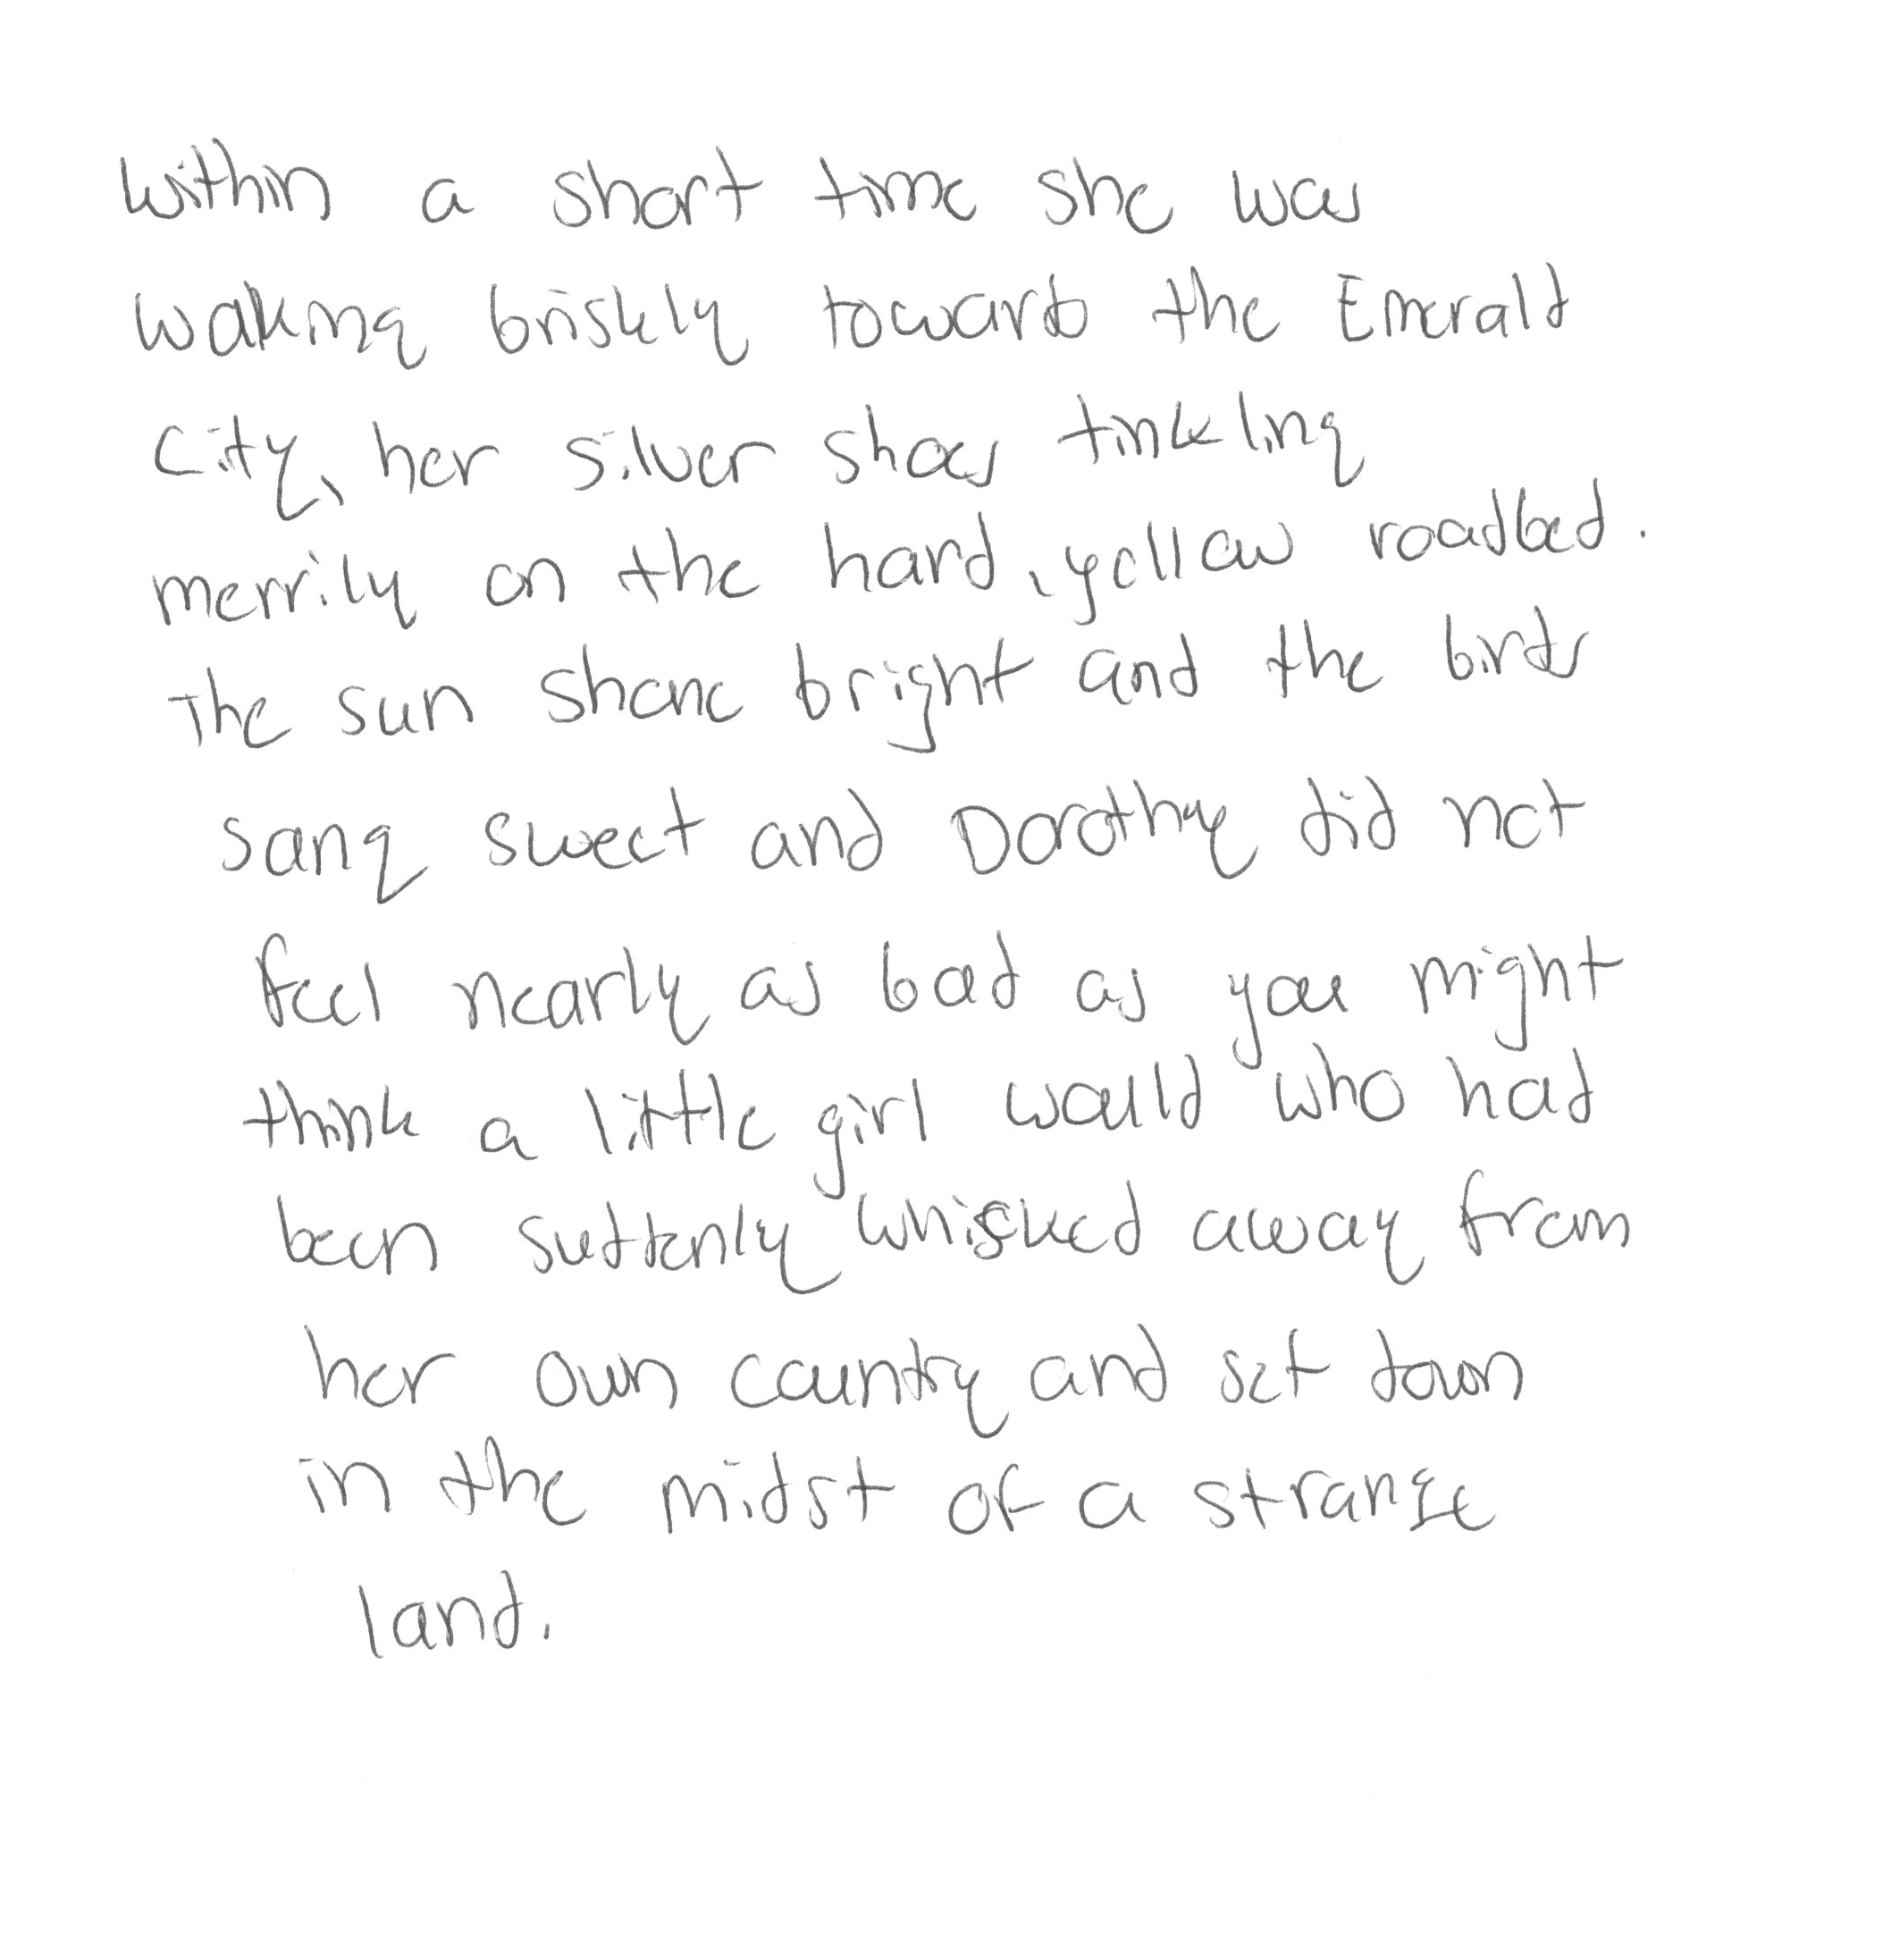 Within a short time she was
walking briskly toward the Emerald
City, her silver shoes tinkling
merrily on the hard, yellow roadbed.
The sun shone bright and the birds
sang sweet and Dorothy did not
feel nearly as bad as you might
think a little girl would who had
been suddenly whisked away from
her own country and set down
in the midst of a strange
land.